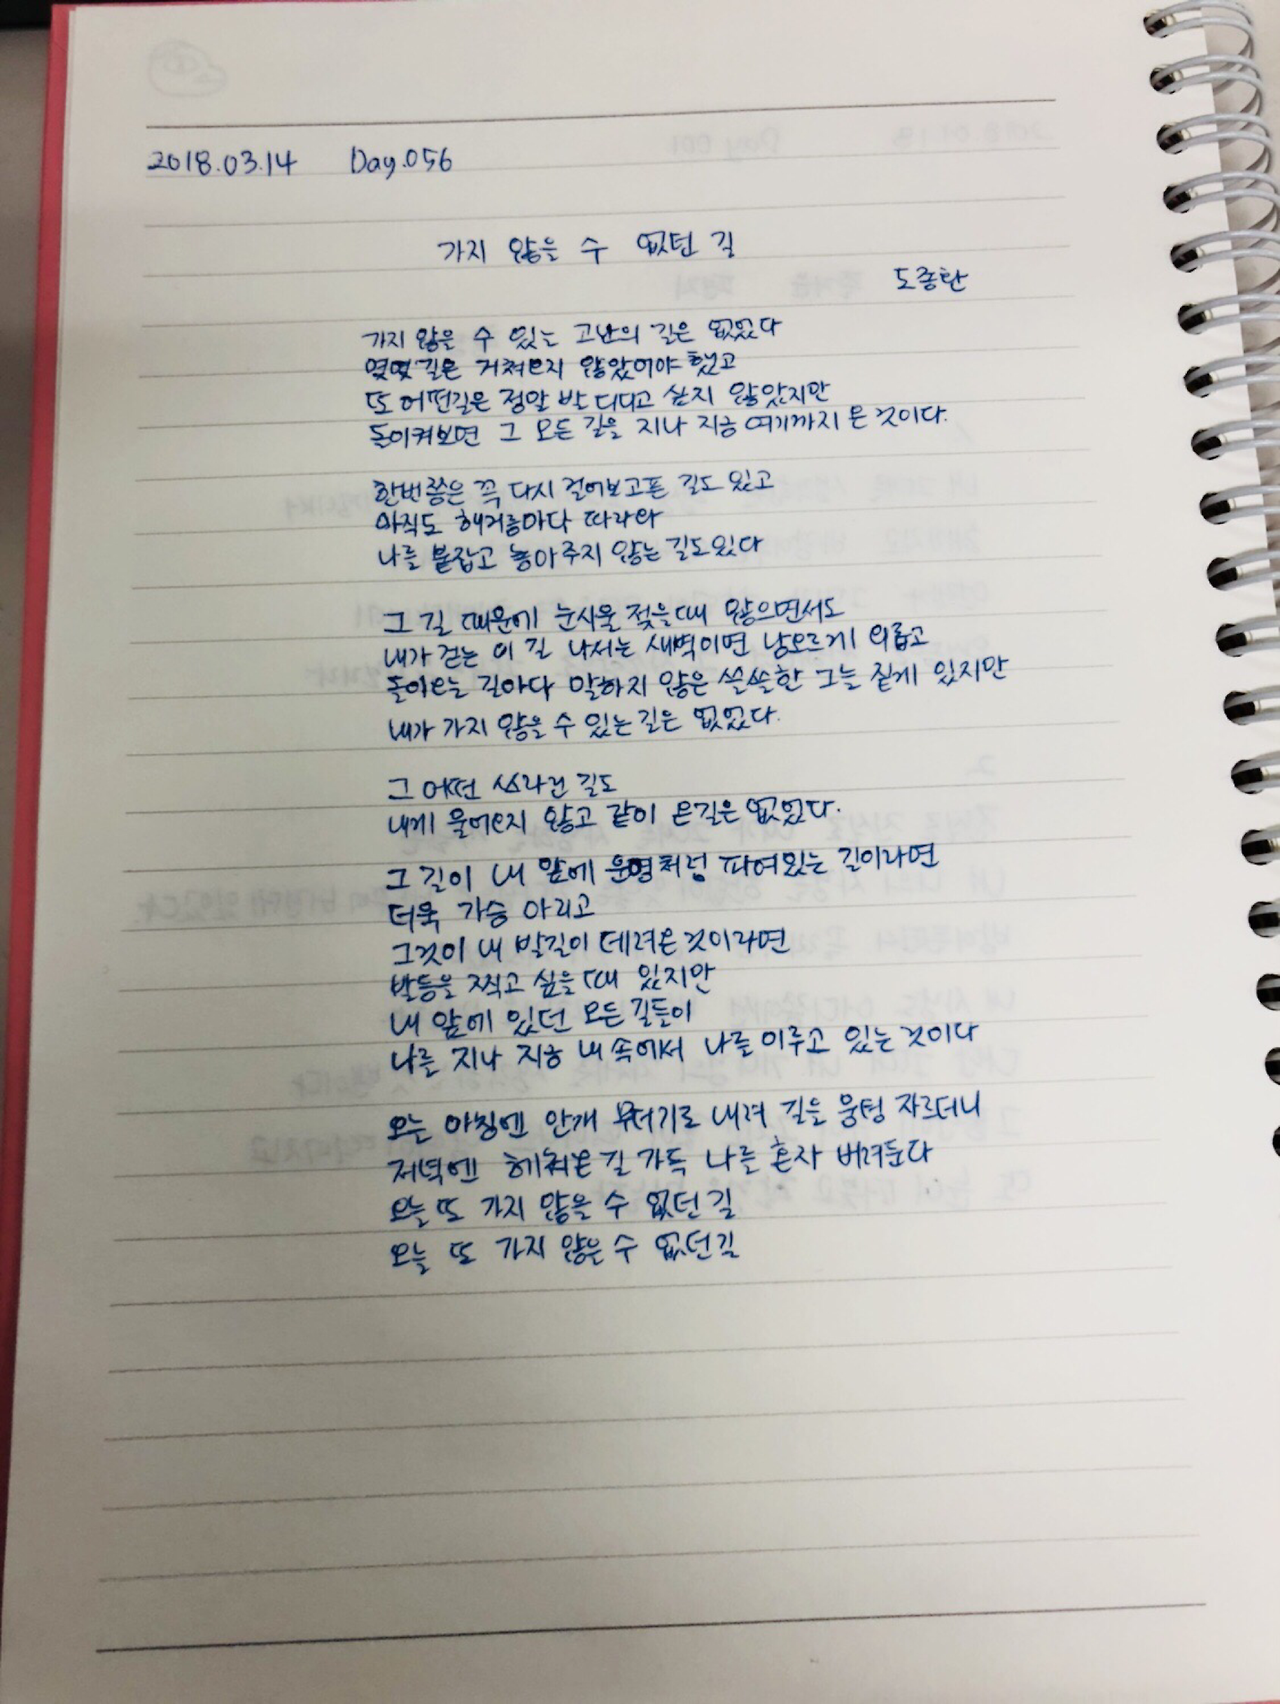 2018.03.14 Day.056
가지 않을 수 없던 길
도종환
가지 않을 수 있는 고난의 길은 없었다
몇몇 길은 거쳐오지 않았어야 했고
또 어떤길은 정말 발 디디고 싶지 않았지만
돌이켜보면 그 모든 길을 지나 지금 여기까지 온 것이다.
한번쯤은 꼭 다시 걸어보고픈 길도 있고
아직도 해거름마다 따라와
나를 붙잡고 놓아주지 않는 길도있다
그 길 때문에 눈시울 젖을때 많으면서도
내가 걷는 이 길 나서는 새벽이면 남모르게 외롭고
돌아오는 길마다 말하지 않은 쓸쓸한 그늘 짙게 있지만
내가 가지 않을 수 있는 길은 없었다.
그 어떤 쓰라린 길도
내게 물어오지 않고 같이 온길은 없었다.
그 길이 내 앞에 운명처럼 파여있는 길이라면
더욱 가슴 아리고
그것이 내 발길이 데려온 것이라면
발등을 찍고 싶을 때 있지만
내 앞에 있던 모든 길들이
나를 지나 지금 내 속에서 나를 이루고 있는 것이다
오늘 아침엔 안개 무더기로 내려 길을 뭉텅 자르더니
저녁엔 헤쳐온 길 가득 나를 혼자 버려둔다
오늘 또 가지 않을 수 없던 길
오늘 또 가지 않은 수 없던 길